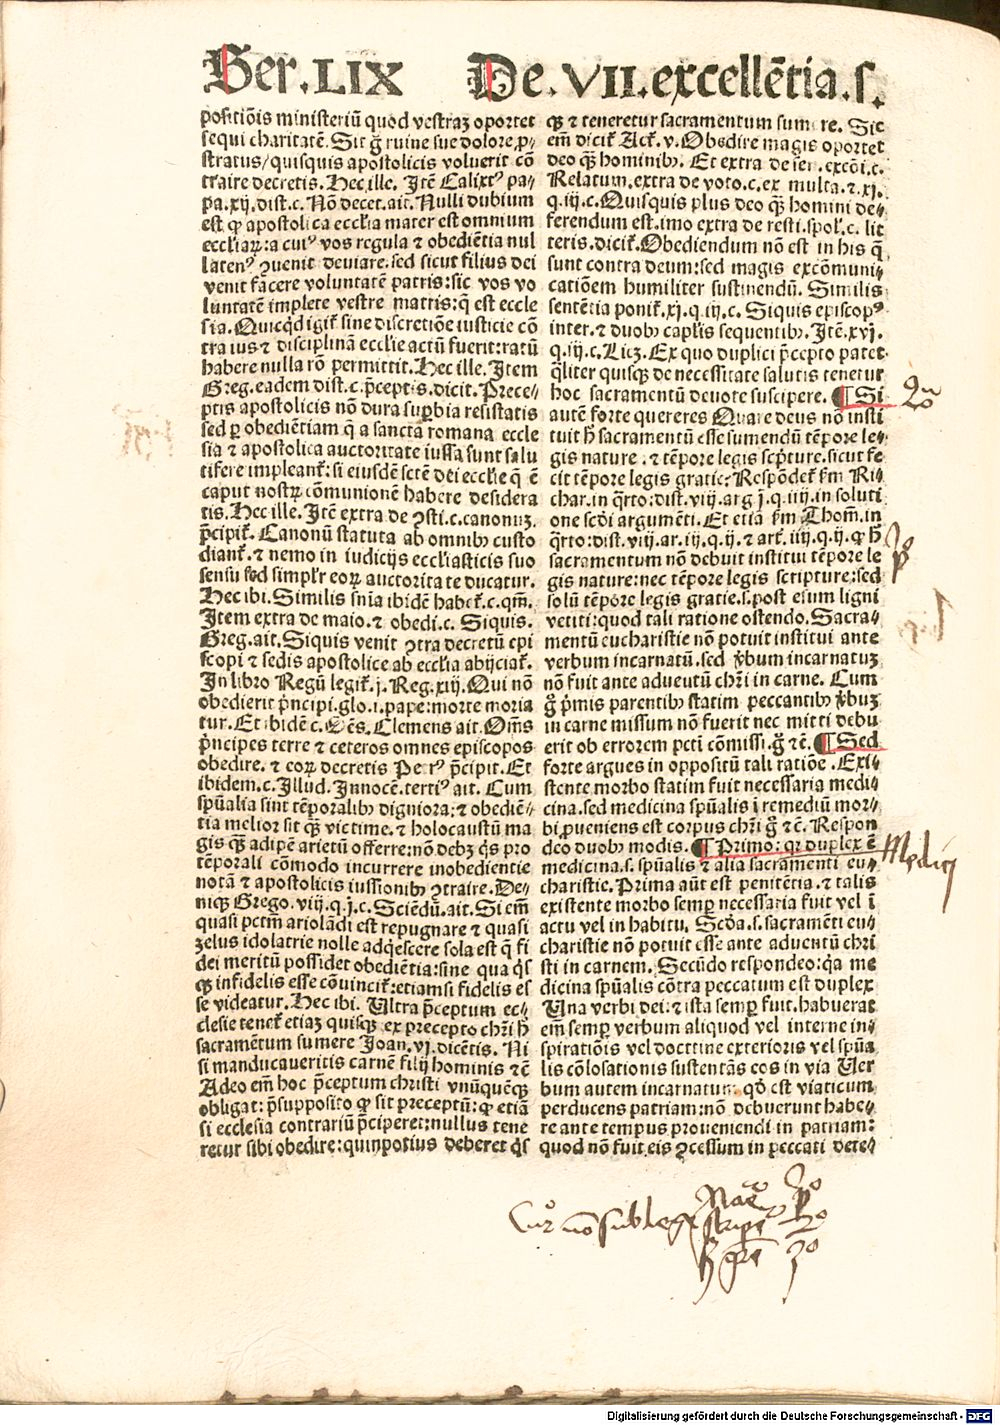 Ser. LIX De. VII. excellẽtia. s.
positiõis ministeriũ quod vestraꝫ oportet
sequi charitatẽ. Sit g̃ ruine sue dolore ꝓ-
stratus/ quisquis apostolicis voluerit cõ
traire decretis. Hec ille. Jtẽ Calixtꝰ pa-
pa. xij. dist. c. Nõ decet. ait. Nulli dubium
est ꝙ apostolica eccľia mater est omnium
eccľiaꝝ: a cuiꝰ vos regula ⁊ obediẽtia nul
latenꝰ ꝯuenit deuiare. sed sicut filius dei
venit facere voluntatẽ patris: sic vos vo
luntatẽ implete vestre matris: q̃ est eccle
sia. Quicq̇d igiť sine discretiõe iusticie cõ
tra ius ⁊ disciplinã ecclie actũ fuerit: ratũ
habere nulla rõ permittit. Hec ille. Jtem
Greg. eadem dist. c. p̃ceptis. dicit. Prece-
ptis apostolicis nõ dura suꝑbia resistatis
sed ꝑ obediẽtiam q̃ a sancta romana eccle
sia ⁊ apostolica auctoritate iussa sunt salu
tifere impleanť: si eiusdẽ sctẽ dei ecclie q̃ ẽ
caput nostrꝝ cõmunionẽ habere desidera
tis. Hec ille. Jtẽ extra de ꝯsti. c. canonuꝫ.
p̃cipiť. Canonũ statuta ab omnibꝰ custo
dianť. ⁊ nemo in iudicijs eccľiasticis suo
sensu sed simpľr eoꝝ auctoritate ducatur.
Hec ibi. Similis sñia ibidẽ habeť. c. qm̃.
Jtem extra de maio. ⁊ obedi. c. Siquis.
Greg. ait. Siquis venit ꝯtra decretũ epi
scopi ⁊ sedis apostolice ab eccľia abijciať.
Jn libro Regũ legiť. j. Reg. xiij. Qui nõ
obedierit p̃ncipi. glo. i. pape: morte moria
tur. Et ibidẽ c. Oẽs. Clemens ait. Om̃s
p̃ncipes terre ⁊ ceteros omnes episcopos
obedire. ⁊ coꝝ decretis Petrꝰ p̃cipit. Et
ibidem. c. Jllud. Jnnocẽ. tertiꝰ ait. Cum
spũalia sint tẽporalibꝰ digniora: ⁊ obediẽ-
tia melior sit q̃ꝫ victime. ⁊ holocaustũ ma
gis q̃ꝫ adipẽ arietũ offerre: nõ debꝫ q̇s pro
tẽporali cõmodo incurrere inobedientie
notã ⁊ apostolicis iussionibꝰ ꝯtraire. De-
niqꝫ Grego. viij. q. j. c. Sciẽdũ. ait. Si em̃
quasi pctm̃ ariolãdi est repugnare ⁊ quasi
zelus idolatrie nolle adq̇escere sola est q̃ fi
dei meritũ possidet obediẽtia: sine qua q̇s
qꝫ infidelis esse cõuinciť: etiamsi fidelis es
se videatur. Hec ibi. Ultra p̃ceptum ec-
clesie teneť etiaꝫ quisqꝫ ex precepto chr̃i h̃
sacramẽtum sumere Joan. vj. dicẽtis. Ni
si manducaueritis carnẽ filij hominis ⁊cẽ
Adeo em̃ hoc p̃ceptum christi vnũquẽqꝫ
obligat: p̃supposito ꝙ sit preceptũ: ꝙ etiã
si ecclesia contrariũ p̃ciperet: nullus tene
retur sibi obedire: quinpotius deberet q̇s
qꝫ ⁊ teneretur sacramentum sumere. Sic
em̃ diciť Act. v. Obedire magis oportet
deo q̃ꝫ hominibꝰ. Et extra de sen. excõi. c.
Relatum. extra de voto. c. ex multa. ⁊. xj.
q. iij. c. Quisquis plus deo q̃ꝫ homini de-
ferendum est. imo extra de resti. spoľ. c. lit
teris. diciť. Obediendum nõ est in his q̃
sunt contra deum: sed magis excõmuni-
catiõem humiliter sustinendũ. Similis
sentẽtia poniť. xj. q. iij. c. Siquis episcopꝰ
inter. ⁊ duobꝰ caplis sequentibꝰ. Jtẽ. xvj.
q. iij. c. Licꝫ. Ex quo duplici p̃cepto patet
q̃liter quisqꝫ de necessitate salutis tenetur
hoc sacramentũ deuote suscipere. ¶ Si
autẽ forte quereres Quare deus nõ insti
tuit h̃ sacramentũ esse sumendũ tẽpore le-
gis nature. ⁊ tẽpore legis scripture. sicut fe
cit tẽpore legis gratie: Respõdeť ẜm Ri-
char. in q̃rto: dist. viij. arg̃ j. q. iiij. in soluti
one sc̃di argumẽti. Et etiã ẜm Thom̃. in
q̃rto: dist. viij. ar. iij. q. ij. ⁊ art̃. iiij. q. ij. ꝙ h̃
sacramentum nõ debuit institui tẽpore le
gis nature: nec tẽpore legis scripture: sed
solũ tẽpore legis gratie. s. post esum ligni
vetiti: quod tali ratione ostendo. Sacra-
mentũ eucharistie nõ potuit institui ante
verbum incarnatũ. sed v̾bum incarnatuꝫ
nõ fuit ante aduentũ chr̃i in carne. Cum
g̃ p̃mis parentibꝰ statim peccantibꝰ v̾buꝫ
in carne missum nõ fuerit nec mitti debu
erit ob errorem pcti cõmissi. g̃ ⁊cẽ. ¶ Sed
forte argues in oppositũ tali ratiõe. Exi-
stente morbo statim fuit necessaria medi-
cina. sed medicina spũalis ĩ remediũ mor-
bi ꝓueniens est corpus chr̃i g̃ ⁊cẽ. Respon
deo duobꝰ modis. ¶ Primo: qꝛ duplex ẽ
medicina. s. spũalis ⁊ alia sacramenti eu-
charistie. Prima aũt est penitẽtia. ⁊ talis
existente morbo semꝑ necessaria fuit vel ĩ
actu vel in habitu. Scd̃a. s. sacramẽti eu-
charistie nõ potuit esse ante aduentũ chr̃i
sti in carnem. Secũdo respondeo: q̃a me
dicina spũalis cõtra peccatum est duplex
Una verbi dei: ⁊ ista semꝑ fuit. habuerat
em̃ semꝑ verbum aliquod vel interne in-
spiratiõis vel doctrine exterioris vel spũa
lis cõsolationis sustentãs eos in via Uer
bum autem incarnatuꝫ. qd̃ est viaticum
perducens patriam: nõ debuerunt habe-
re ante tempus proueniendi in patriam:
quod nõ fuit eis ꝓcessum in peccati dete-
Medici
Cur nõ sub lege
Digitalisierung gefördert durch die Deutsche Forschungsgemeinschaft - DFG